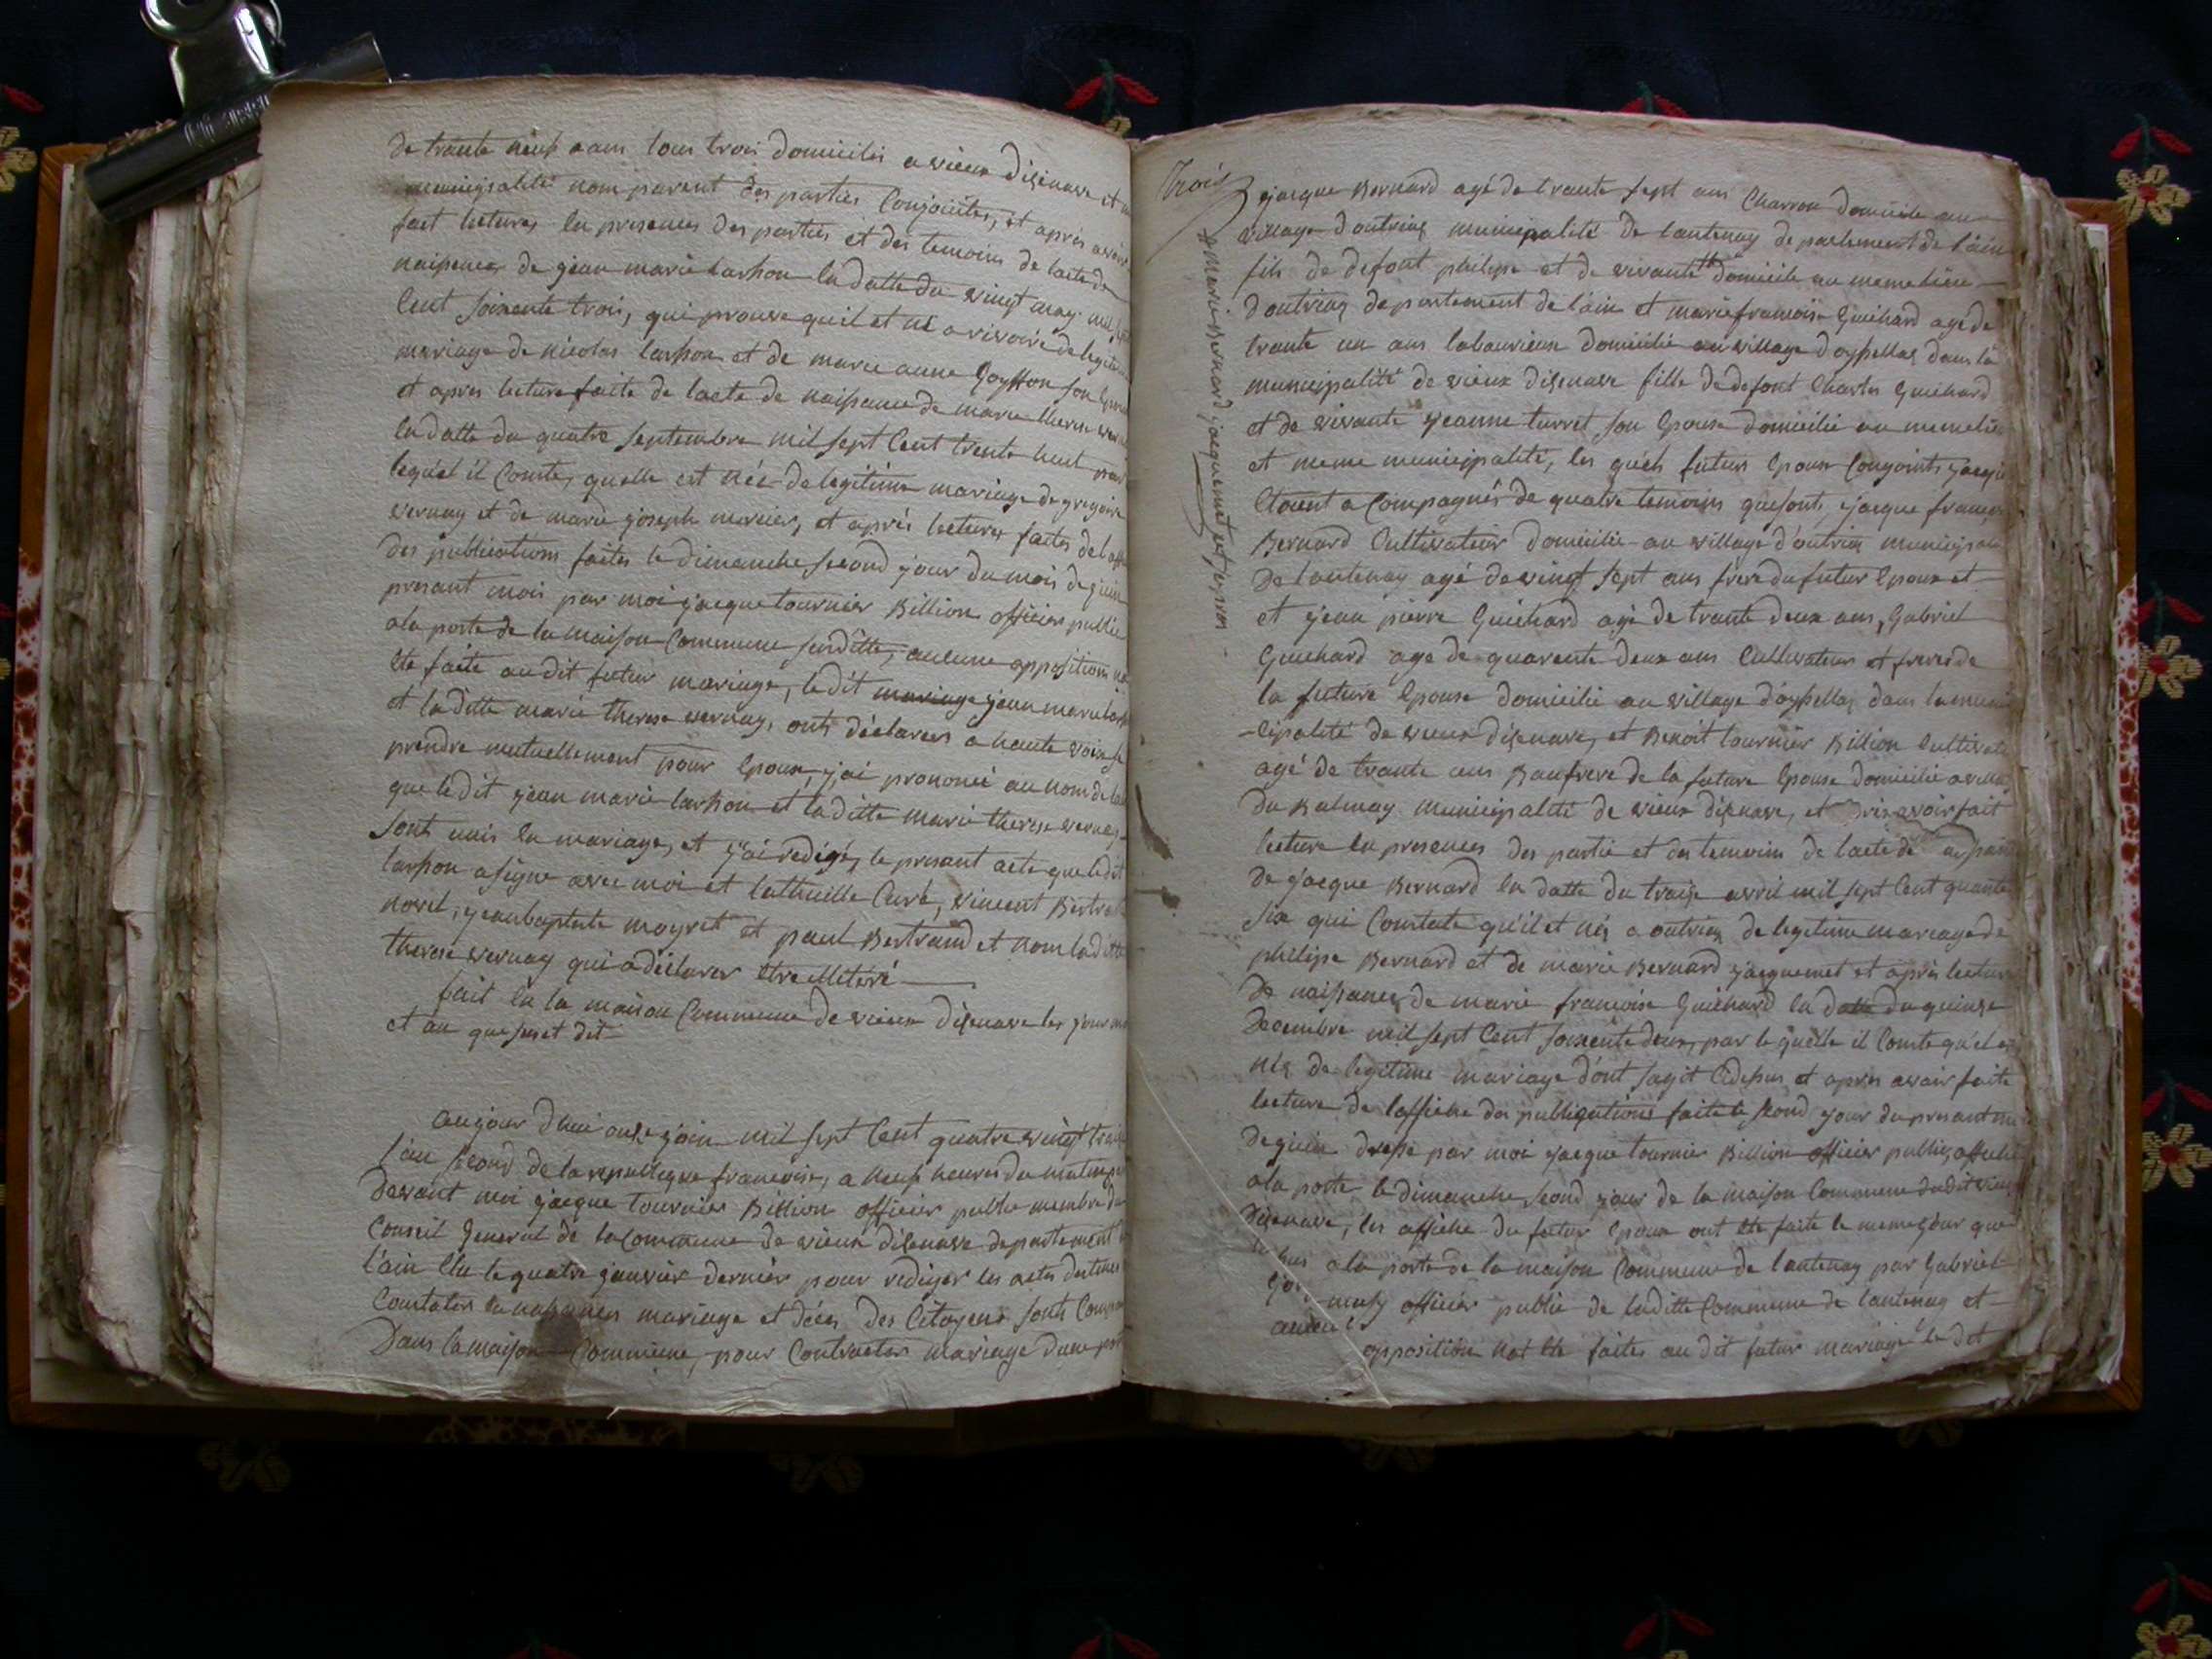 de trante neuf aans tous trois domicilies a vieux disenave et
municipalité nom parent des parties Conjointes, et après avoir
fait lectures en presences des parties et des temoins de lacte de
naissences de jean marie larson en datte du vingt may mil sept
Cent soixante trois, qui prouve quil et né a visoire de legitime
mariage de nicolas larson et de marie anne son
et apres lecture faite de lacte de naissance de marie therese
en datte du quatre septembre mil sept Cent trente huit par
lequel il Conste, quelle est née de legitime mariage de gregoire
vernay et de marie joseph mercier, et après lectures faites de laffiche
des publications faites le dimanche second jour du mois de juin
presant mois par moi jacque tournier Billion officier public
a la porte de la maison Commune sus ditte, aucune opposition
ete faite au dit futur mariage, le dit mariage jean marie
et laditte marie therese vernay, onts déclarers a haute voix se
prendre mutuellement pour Epoux, j'ai prononcé au nom de la
que ledit jean marie larson et laditte marie therese vernay
sont unis en mariage, et j'ai redigé, le presant acte que ledit
larson a signe avec moi et Curé, vincent Bertrand
novel, jean baptiste moyret et paul Bertrand et nom laditte
therese vernay qui a déclarer être illetéré
fait en la maison Commune de vieux disenave les jour
et an que dit
aujour d'hui onze join mil sept Cent quatre vingt traize
l'an second de la republique francoise, a neuf heures du matin par
devant moi jacque tournier Billion officier public membre du
Conseil general de la Commune de vieux disenave departement de
l'ain Elu le quatre janvier dernier pour rediger les actes destinés
Constater la naissances mariage et déces des Citoyens sont
Dans la maison Commune, pour Contracter mariage d'une part
Trois
jacque Bernard agé de trante sept ans Charron domicile au
village doutriaz municipalité de lantenay departement de l'ain
fils de defont philipe et de vivante # domicile au meme lieu
doutriaz departement de l'ain et marie francoise Guichard agé de
trante un ans labourieux domicilié au village doysellaz dans la
municipalité de vieux disenave fille de defont Charles Guichard
et de vivante jeanne turret son Epouse domicilié au meme lieu
et meme municipalité, les quels futurs Epoux Conjoints jacque
Etoient a Compagnés de quatre temoins que sont, jacque françois
Bernard Cultivateur domicilié au village d'outriaz municipalité
De lantenay agé de vingt sept ans frere du futur Epoux et
et jean pierre Guichard agé de trante deux ans, Gabriel
Guichard age de quarente deux ans Cultivateur et freres de
la future Epouse domicilié au village d'oysellaz dans la muni
-cipalité de vieux disenave, et Benoit tournier Billion Cultivateur
agé de trante ans Baufrere de la future Epouse domicilié a
Du Balmay municipalité de vieux disenave, et avoir fait
lecture en presences des partie et des temoins de lacte de
De jacque Bernard en datte du traize avril mil sept Cent quarante
six qui Constate qu'il et nés a outriaz de legitime mariage de
philipe Bernard et de marie Bernard jacquemet et après lecture
De naissances de marie francoise Guichard en datte du quinze
Decembre mil sept Cent soixente deux, par le quelle il Conste qu'el
nés de legitime mariage d'ont sagit Cidessus et apres avair faite
lecture de l'affiche des publiquations faite le second jour du presant mois
De juin dressé par moi jacque tournier Billion officier public, affiché
a la porte le dimanche second jour de la maison Commune dudit vieux
Disenave, les affiche du futur Epoux ont ete faite le meme jour que
a la porte de la maison Commune de lantenay par Gabriel
officier public de laditte Commune de lantenay et
opposition not ete faites au dit futur mariage le dit
# marie Bernard jacquemet